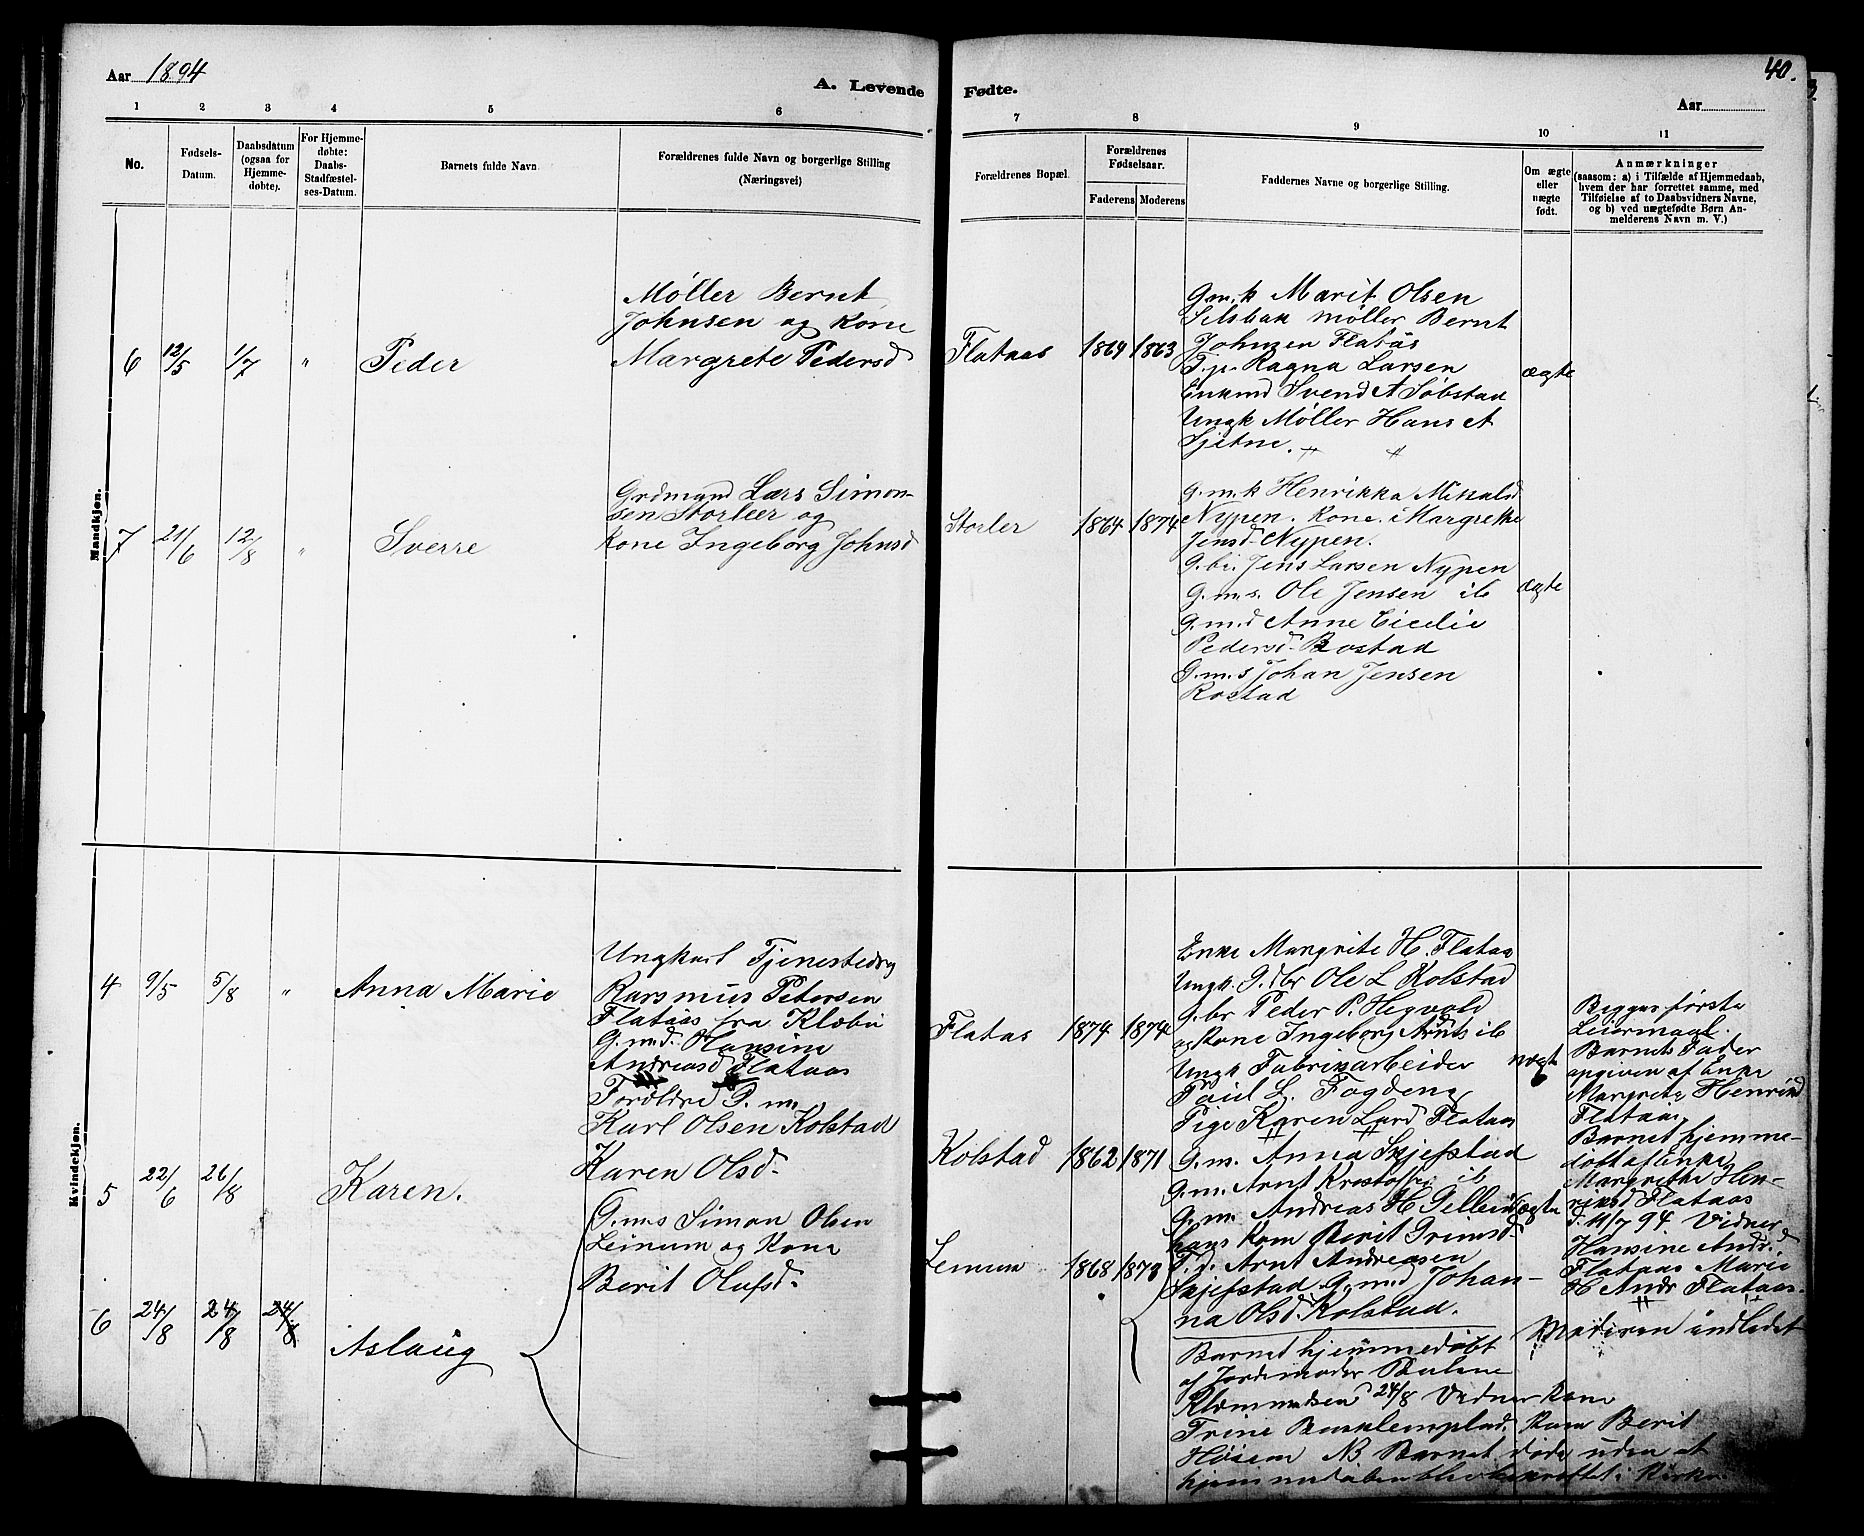 Aar 1894
A. Levende Fødte.
40.
Aar
1 2 3 4 5 6 7 8 9 10 11
No.
Fødsels-
Datum.
Daabsdatum
(ogsaa for
Hjemme-
døbte).
For Hjemme-
døbte:
Daabs-
Stadfæstel-
ses-Datum.
Barnets fulde Navn
Forældrenes fulde Navn og borgerlige Stilling
(Næringsvei)
Forældrenes Bopæl.
Forældrenes
Fødselsaar.
Faderens Moderens
Faddernes Navne og borgerlige Stilling.
Om ægte
eller
uægte
født.
Anmærkninger
(saasom: a) i Tilfælde af Hjemmedaab,
hvem der har forrettet samme, med
Tilføielse af to Daabsvidners Navne,
og b) ved uægtefødte Børn An-
melderens Navn m. V.)
Mandkjøn.
6 12/5 1/7 " Peder
Møller Bernt
Johnsen og Kone
Margrete Pedersd
Flataas 1864 1863
G.m.k Marit Olsen
Selsbak møller Bernt
Johnsen Flatås
T.p. Ragna Larsen
Enkmd Svend A Sobstad
Ungk Møller Hans A
Sjetne.
ægte
7 21/6 12/8 " Sverre
Grdmand Lars Simon-
sen Storleer og
Kone Ingeborg Johnsd
Storler 1864 1874
G.m.k Henrikka
Nypen. Kone. Margrethe
Jensd Nypen.
G.br. Jens Larsen Nypen
G.m.s. Ole Jensen ib
G.m.d Anne Cicelie
Pedersd. Rostad
G.m.s Johan Jensen
Rostad
ægte
Kvindekjøn.
4 9/5 5/8 " Anna Marie
Ungkarl Tjenestedrg
Rasmus Petersen
Flataas fra Klæbu
G.md. Hansine
Andreasd Flataas
Flataas 1874 1874
Enke Margrite H. Flataas
Ungk. G.br Ole L Kolstad
G.br Peder P. Hegvold
og Kone Ingeborg Arntsd ib
Ungk Fabrikarbeider
Paul L. Fogdeng
Pige Karen Larsd Flataas
uægt
Begges første
Leiermaal.
Barnets Fader
opgiven af Enke
Margrete Henriksd
Flataas
Barnet hjemme-
døbt af Enke
Margrethe Hen-
riksd Flataas
d. 11/7 94 Vidner
Hansine Andr.d
Flataas Marie
H Andr Flataas.
5 22/6 26/8 Karen.
Forældre G.m.
Karl Olsen Kolstad
Karen Olsd.
Kolstad 1862 1871
G.m. Anna Skjefstad
G.m. Arnt Kristoffer ib
G.m. Andreas H Tellein
hans Kone Berit Grimsd.
T.d. Arnt Andreasen
Skjefstad G.md Johan-
na Olsd. Kolstad.
ægte
6 24/8 24/8 24/8 Aslaug
G.m.s Simon Olsen
Leinum og Kone
Berit Olufsd.
Leinum 1868
Barnet hjemmedøbt
af Jordemoder
Klemmetsen 24/8 Vidner Kone
Trine Kone Berit
Høsem NB Barnet døde uden at
hjemmedåben blev bekræftet i Kirke
Moderen indledet